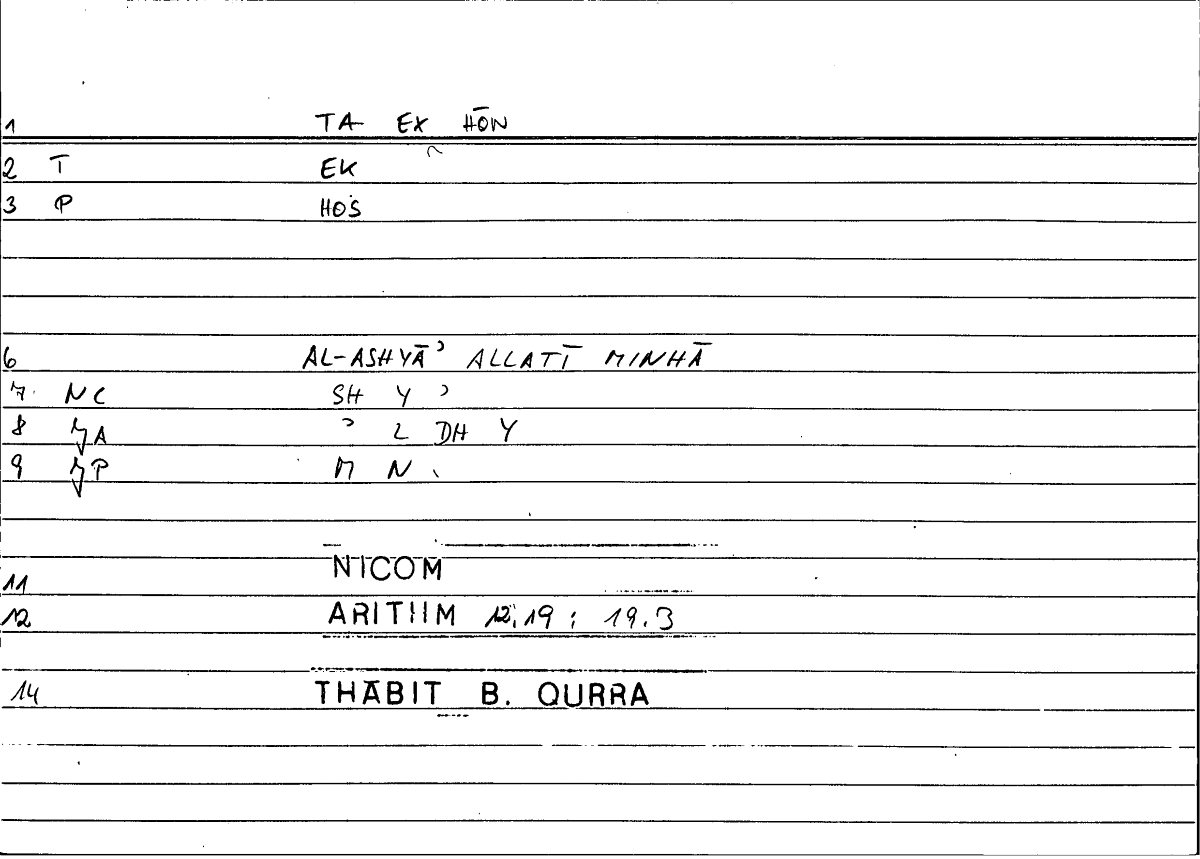 1 TA EX HŌN
2 T EK
3 P HOS
6 AL-ASHYĀʾ ALLATĪ MINHĀ
7 NC SH Y ʾ
8 A ʾ L DH Y
9 P M N
11 NICOM
12 ARITHM 12.19 ; 19.3
14 THĀBIT B. QURRA